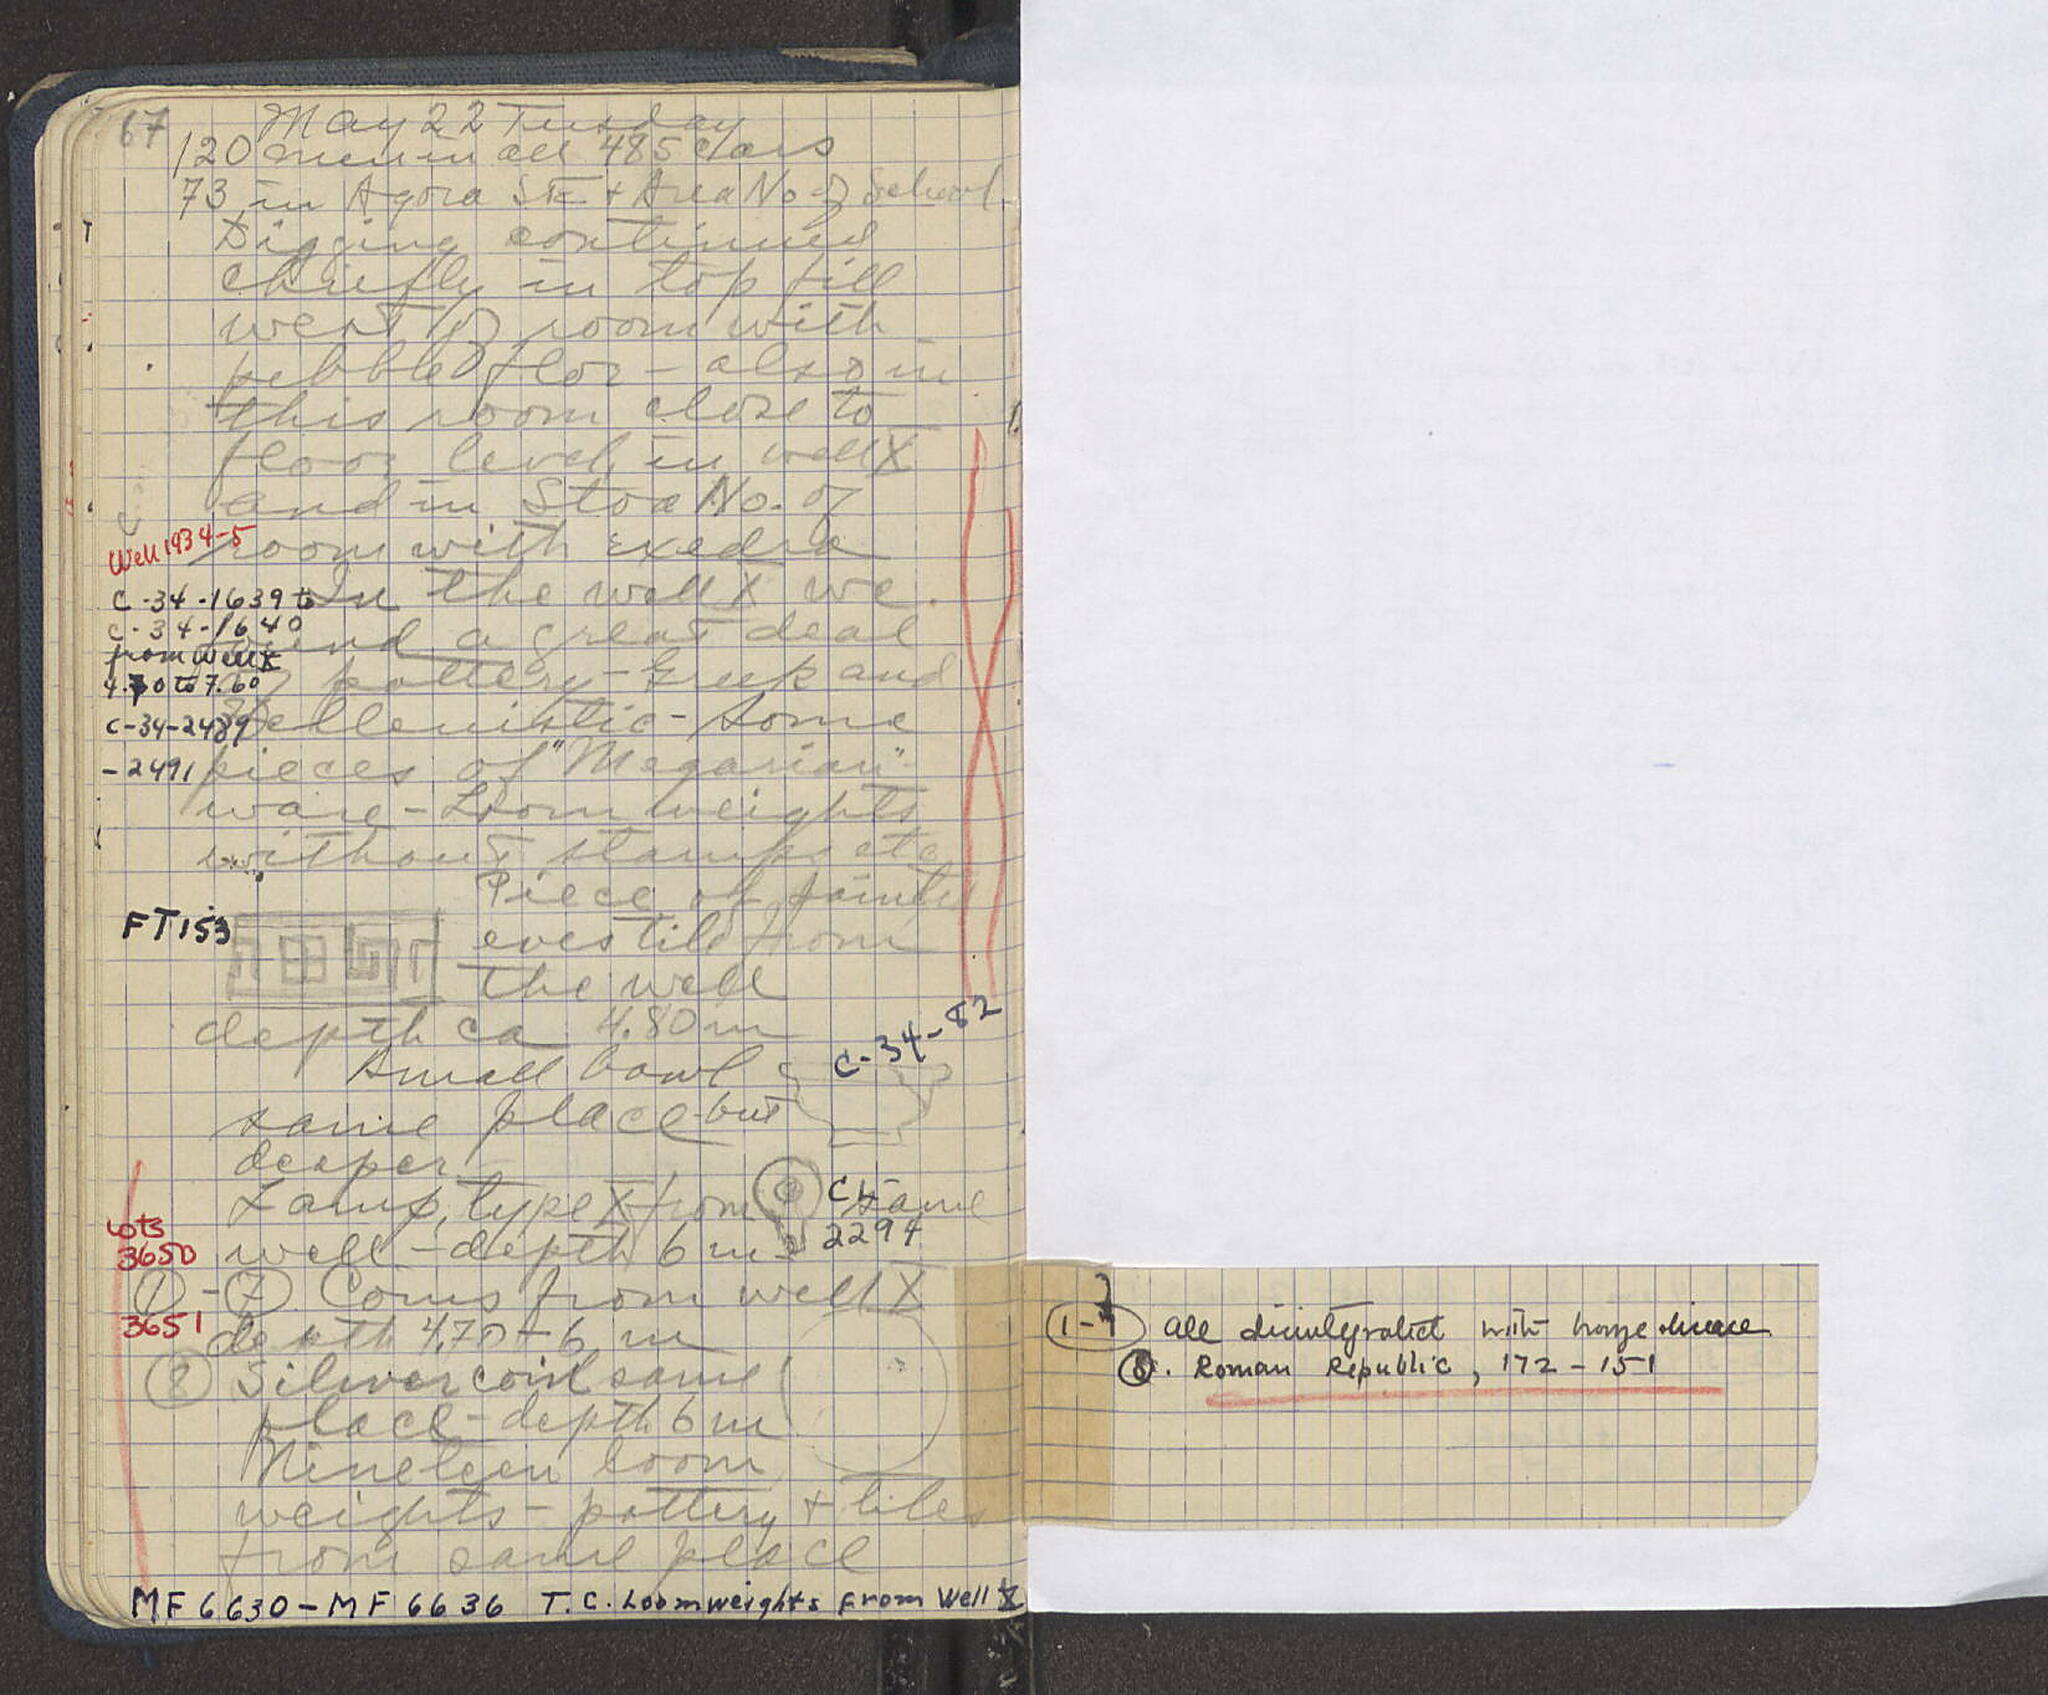 67 May 22 Tuesday
120 men in all 485 cars
73 in Agora SE + Area No of School
Digging continued
chiefly in top fill
west of room with
pebble floor - also in
this room close to
floor level, in well X
and in Stoa No. of
room with exedra
Well 1934-5
In the well X we
found a great deal
of pottery - Greek and
Hellenistic - some
pieces of "Megarian"
ware - Loom weights
without stamps etc
C-34-1639 to
C-34-1640
from well X
4.70 to 7.60
C-34-2489
-2491
Piece of painted
eves tile from
the well
depth ca 4.80 m
FT 153
Small bowl
same place but
deeper
C-34-82
Lamp, type X from same
well - depth 6 m
CL
2294
Lots
3650
1 - 7 Coins from well X
depth 4.70 - 6 m
3651
8 Silver coin same
place - depth 6 m
Nineteen loom
weights - pottery + tiles
from same place
MF 6630 - MF 6636 T.C. Loomweights from Well X
1-7 all disintegrated with bronze disease
8. Roman Republic, 172-151